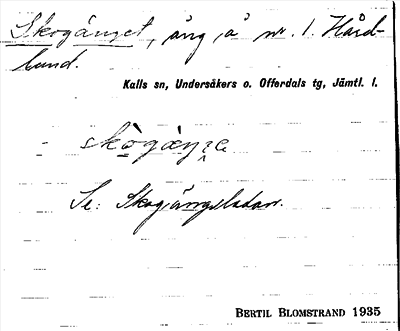 Skogänget, äng, å nr. 1. Hård-
lund.
Kalls sn, Undersåkers o. Offerdals tg, Jämtl. l.
skògàŋɛ
Se: Skogängsladan.
BERTIL BLOMSTRAND 1935